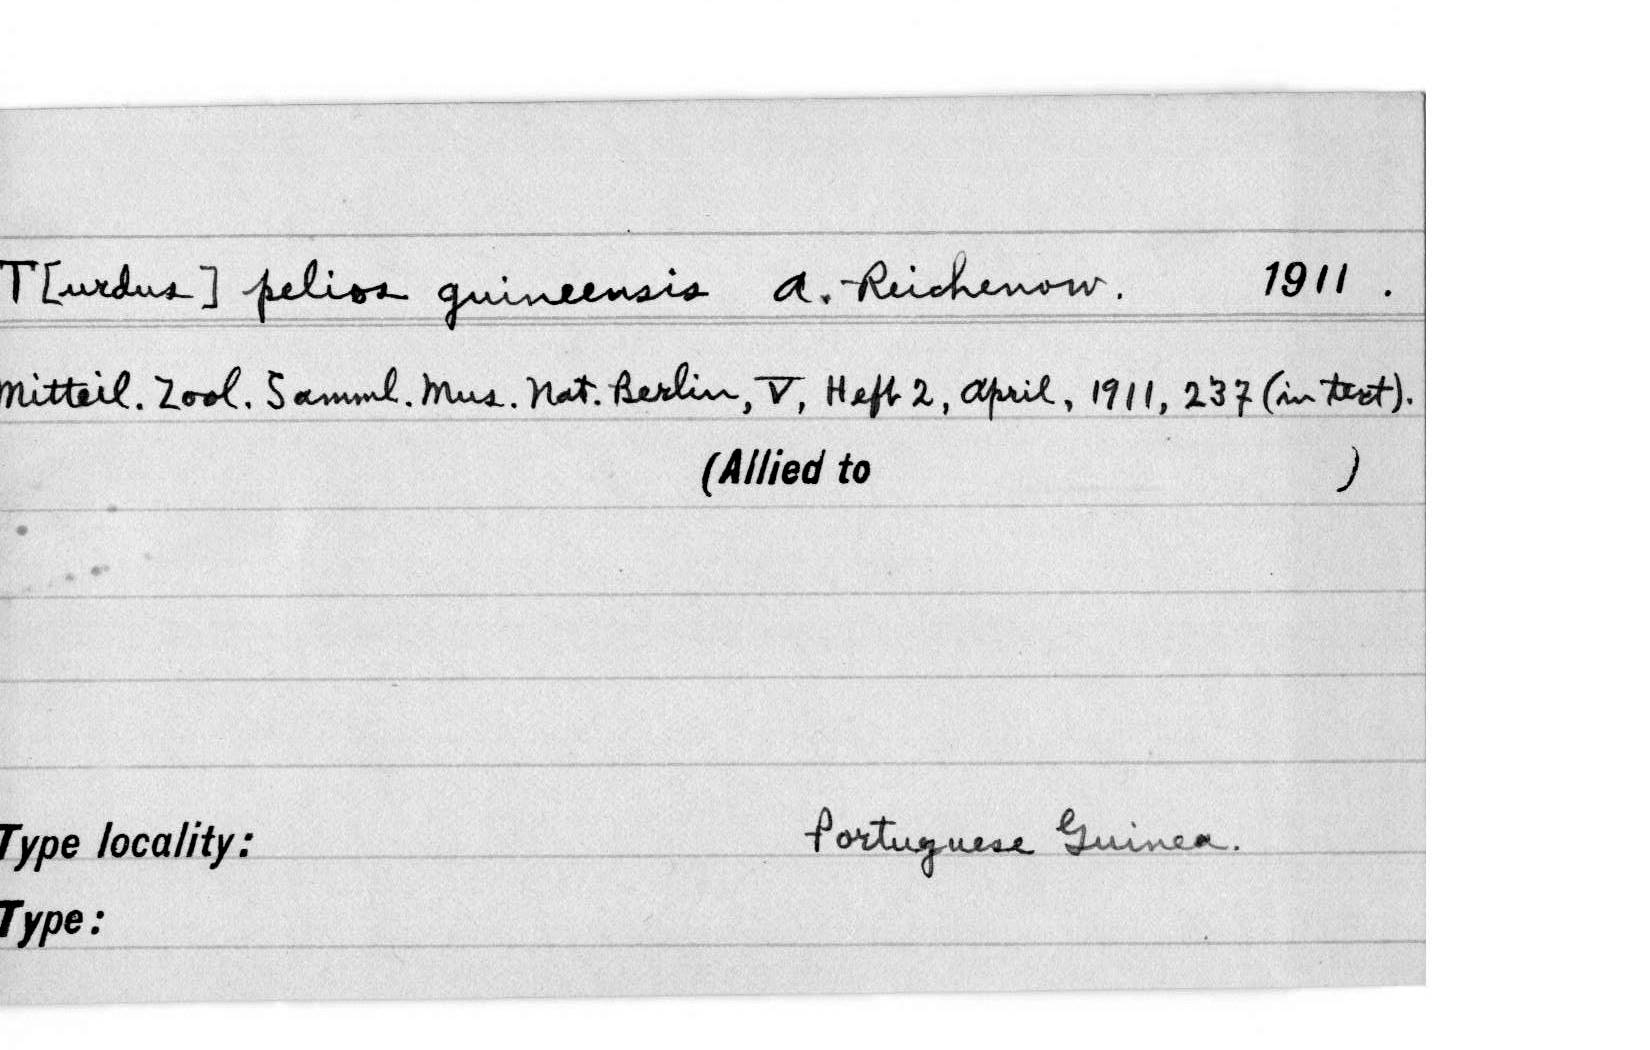 T[urdus] pelios guineensis A. Reichenow. 1911.
Mitteil. Zool. Samml. Mus. Nat. Berlin, V, Heft 2, April, 1911, 237 (in text).
(Allied to )
Type locality: Portuguese Guinea.
Type: